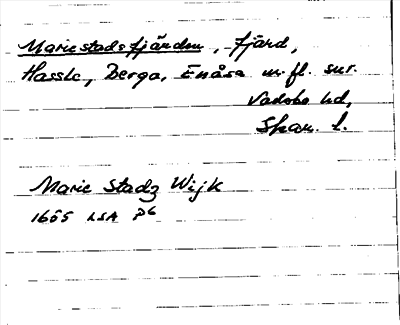 Mariestadsfjärden, fjärd,
Hassle, Berga, Enåsa m.fl. snr.
Vadsbo hd,
Skar. l.
Marie Stadz Wijk
1655 LSA P6